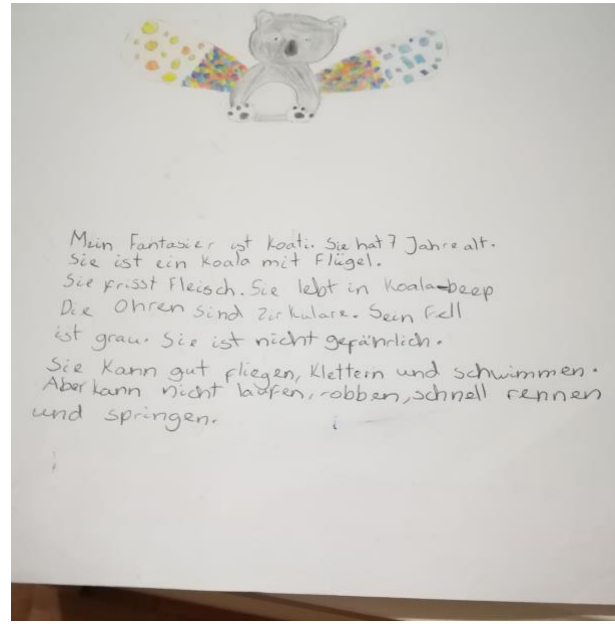 Mein Fantasier ist Koati. Sie hat 7 Jahre alt.
Sie ist ein Koala mit Flügel.
Sie frisst Fleisch. Sie lebt in Koala-beep
Die Ohren sind Zirkulare. Sein Fell
ist grau. Sie ist nicht gefährlich.
Sie kann gut fliegen, klettern und schwimmen.
Aber kann nicht laufen, robben, schnell rennen
und springen.